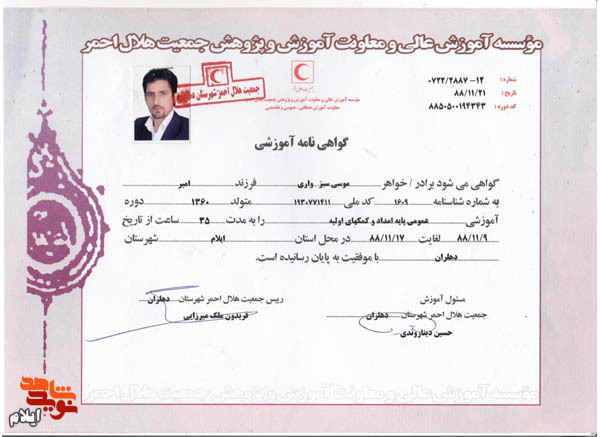 مؤسسه آموزش عالی و معاونت آموزش و پژوهش جمعیت هلال احمر
شماره : ۱۲-۰۷۲۲/۲۸۸۷
تاریخ : ۸۸/۱۱/۲۱
کد دوره : ۸۸۵۰۵۰۰۱۹۴۳۴۳
جمعیت هلال احمر
مؤسسه آموزش عالی و معاونت آموزش و پژوهش جمعیت هلال احمر
معاونت آموزش همگانی ، عمومی و تخصصی
جمعیت هلال احمر شهرستان
گواهی نامه آموزشی
گواهی می شود برادر / خواهر موسی سبز واری فرزند امیر
به شماره شناسنامه ۱۶۰۹ کد ملی ۱۹۳۰۷۷۱۴۱۱ متولد ۱۳۶۰ دوره
آموزشی عمومی پایه امداد و کمکهای اولیه را به مدت ۳۵ ساعت از تاریخ
۸۸/۱۱/۹ لغایت ۸۸/۱۱/۱۷ در محل استان ایلام شهرستان
دهلران با موفقیت به پایان رسانیده است.
مسئول آموزش
جمعیت هلال احمر شهرستان دهلران
حسین دیناروندی
رییس جمعیت هلال احمر شهرستان دهلران
فریدون ملک میرزایی
مؤسسه آموزش عالی و معاونت آموزش و پژوهش جمعیت هلال احمر
نوید شاهد
ایلام